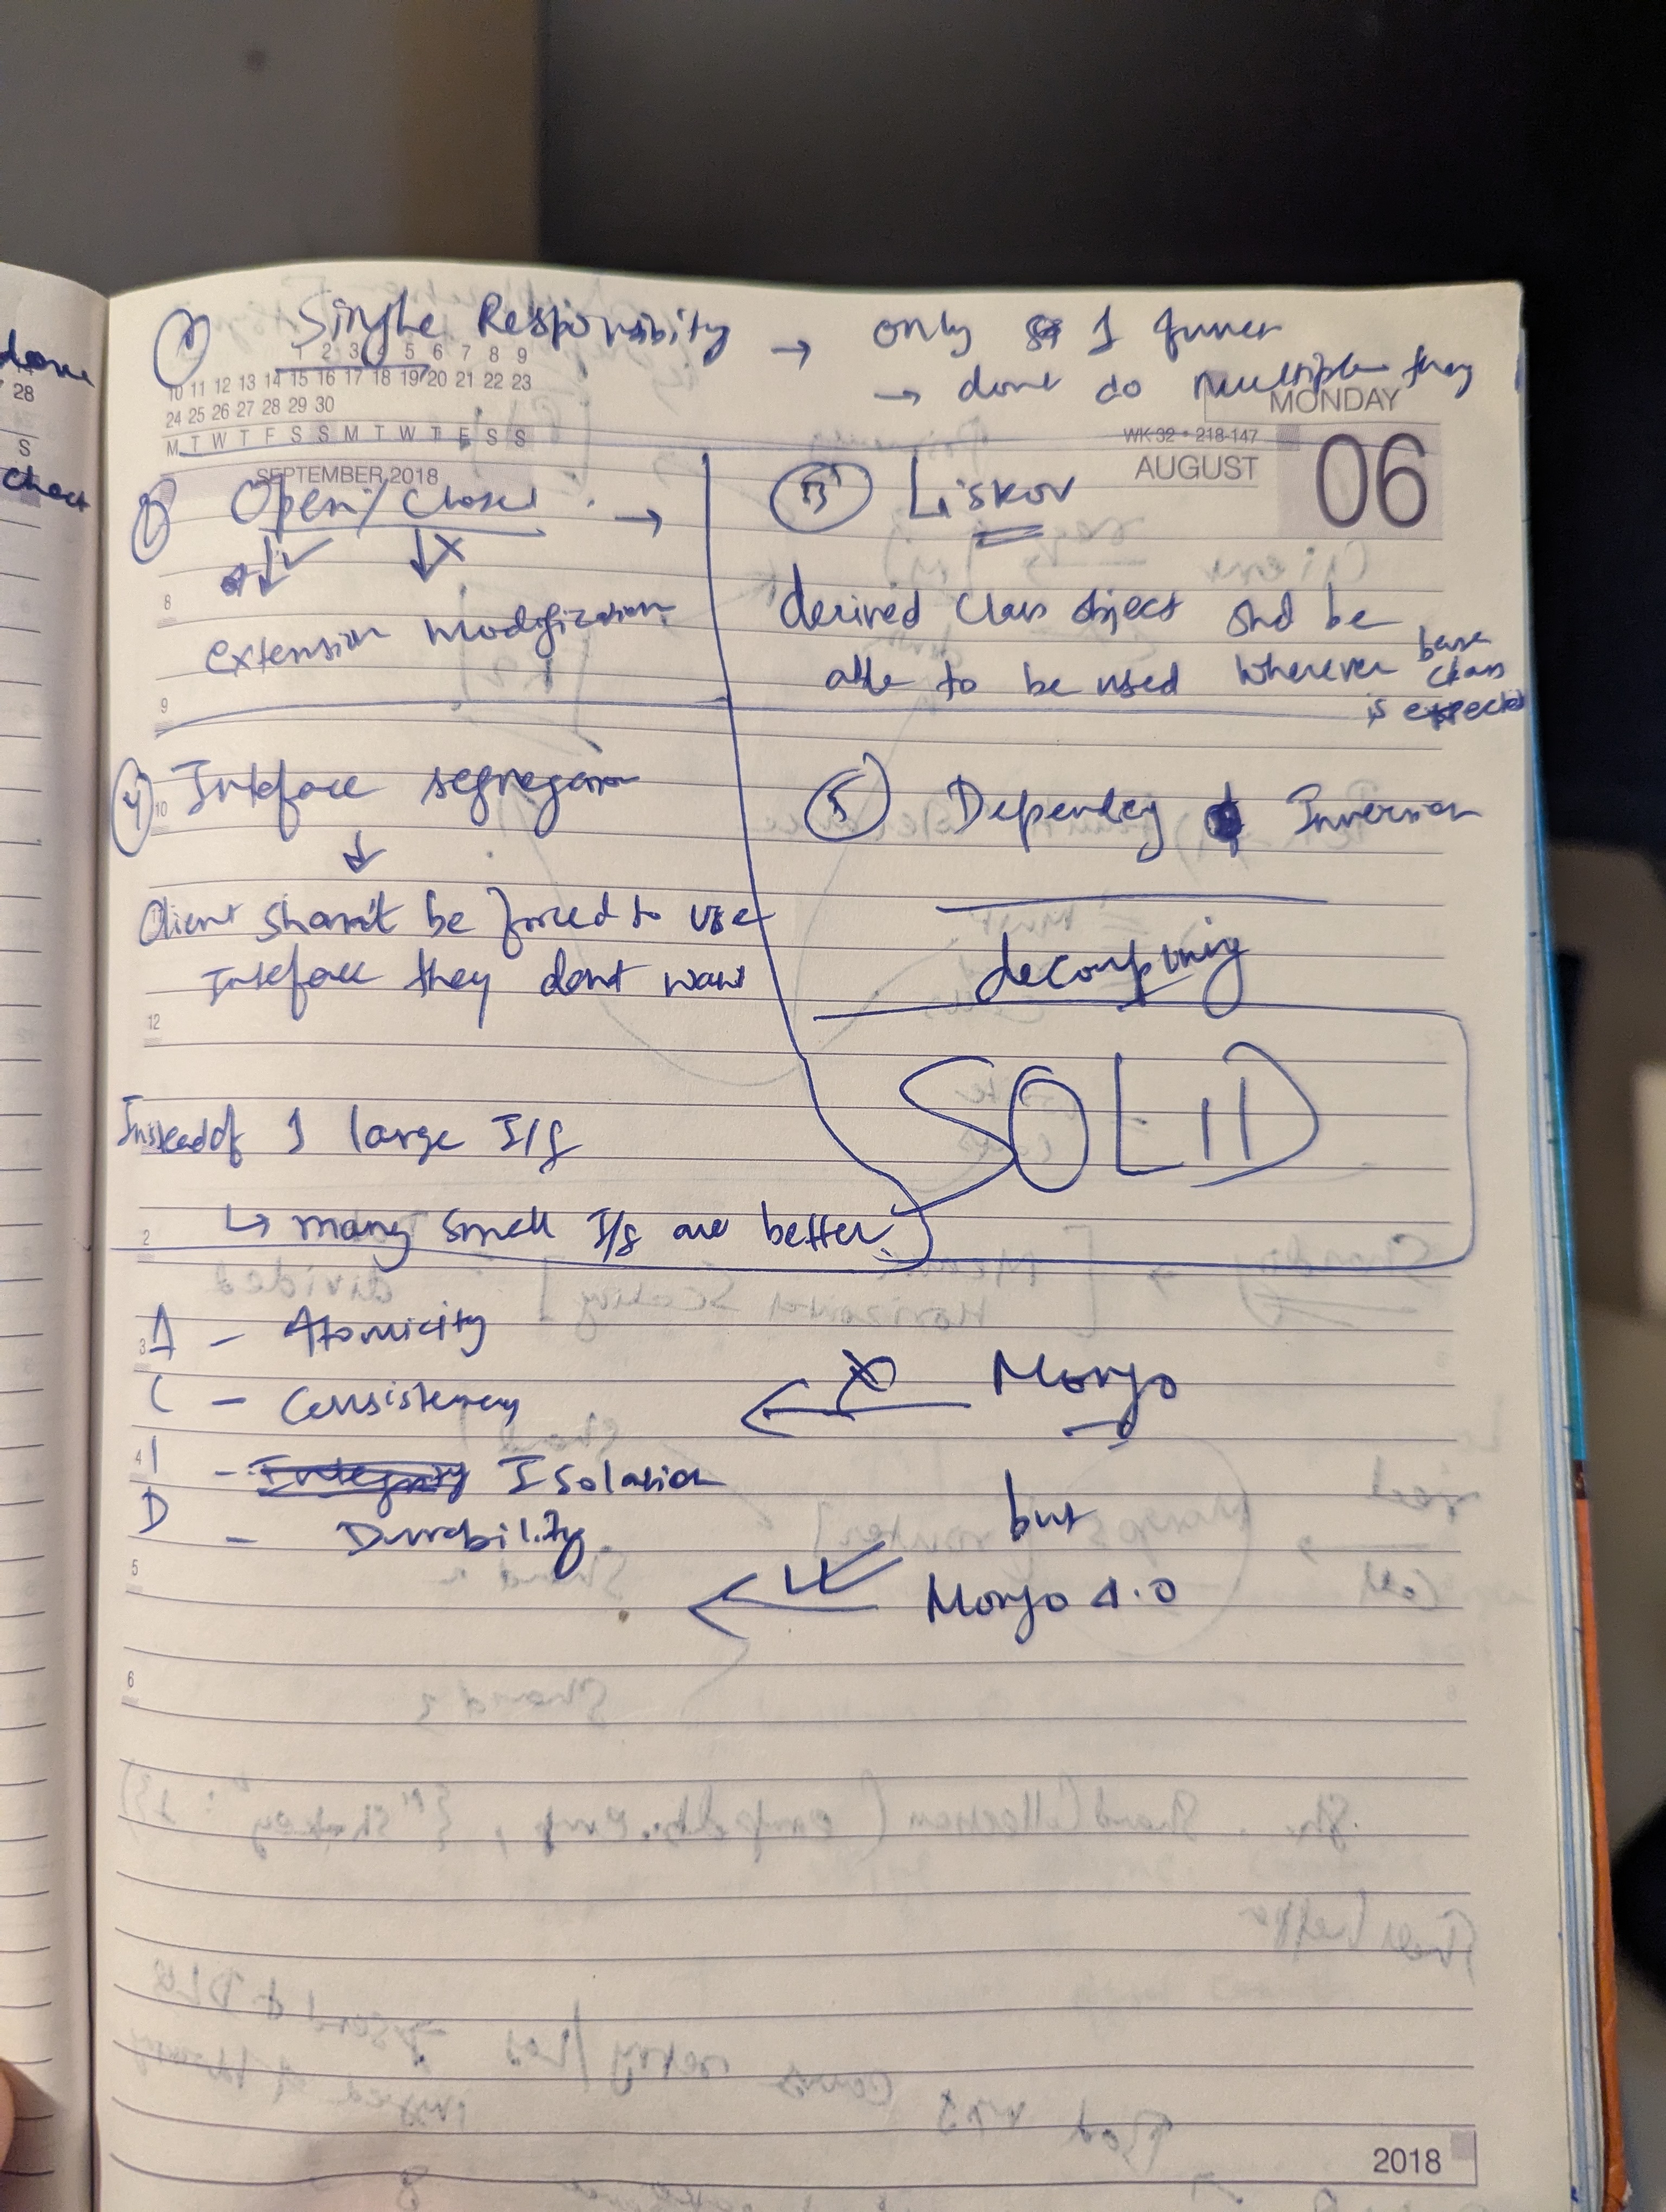 ① Single Responsibity → only 1
→ dont do multiple
1 2 3 4 5 6 7 8 9
10 11 12 13 14 15 16 17 18 19 20 21 22 23
24 25 26 27 28 29 30
M T W T F S S M T W T F S S
SEPTEMBER 2018
MONDAY
WK 32 • 218-147
AUGUST
06
Open/Closed →
extension modification
Liskov
derived class object shd be
able to be used wherever base
class
is expected
④ Interface segregation
Client shan't be forced to use
Interface they dont want
Instead of 1 large I/f
↳ many small I/fs are better.
⑤ Dependcy Inversion
decoupling
SOLID
A - Atomicity
C - Consistency
I - Integrity Isolation
D - Durability
Mongo
but
Mongo 4.0
8
9
10
12
2
3
4
5
6
28
S
check
2018